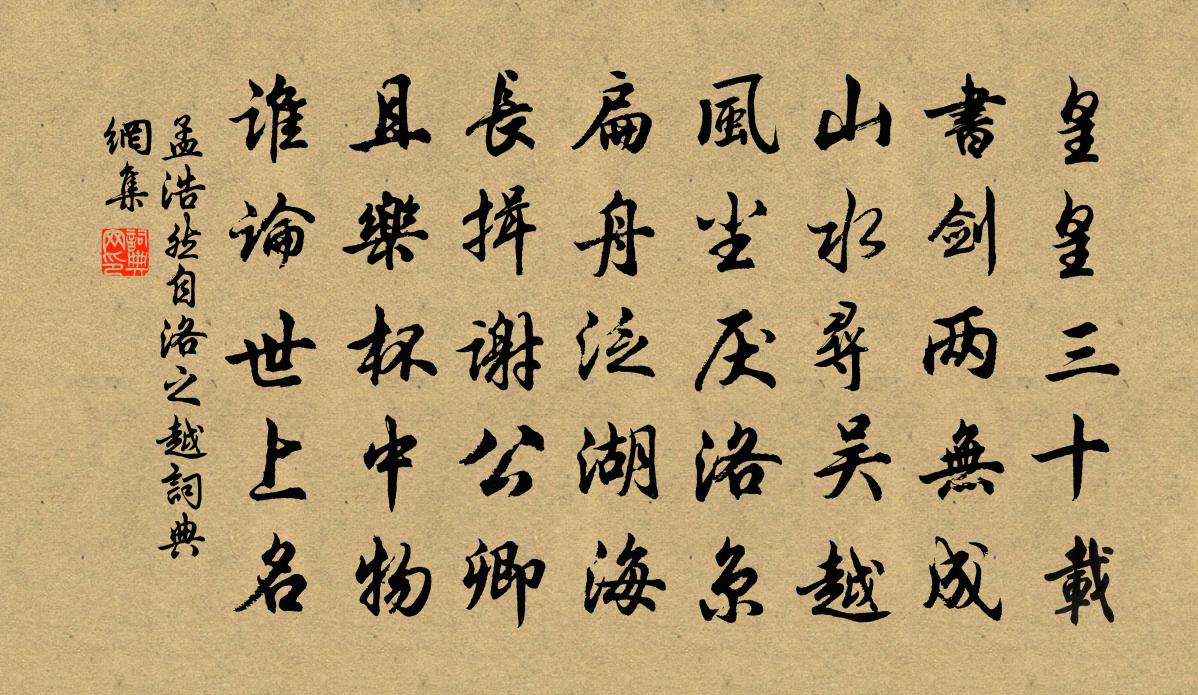 皇皇三十載
書劍两無成
山水尋吴越
風尘厌洛京
扁舟泛湖海
長揖謝公卿
且樂杯中物
誰論世上名
孟浩然自洛之越詞典
網集
詞典
网印